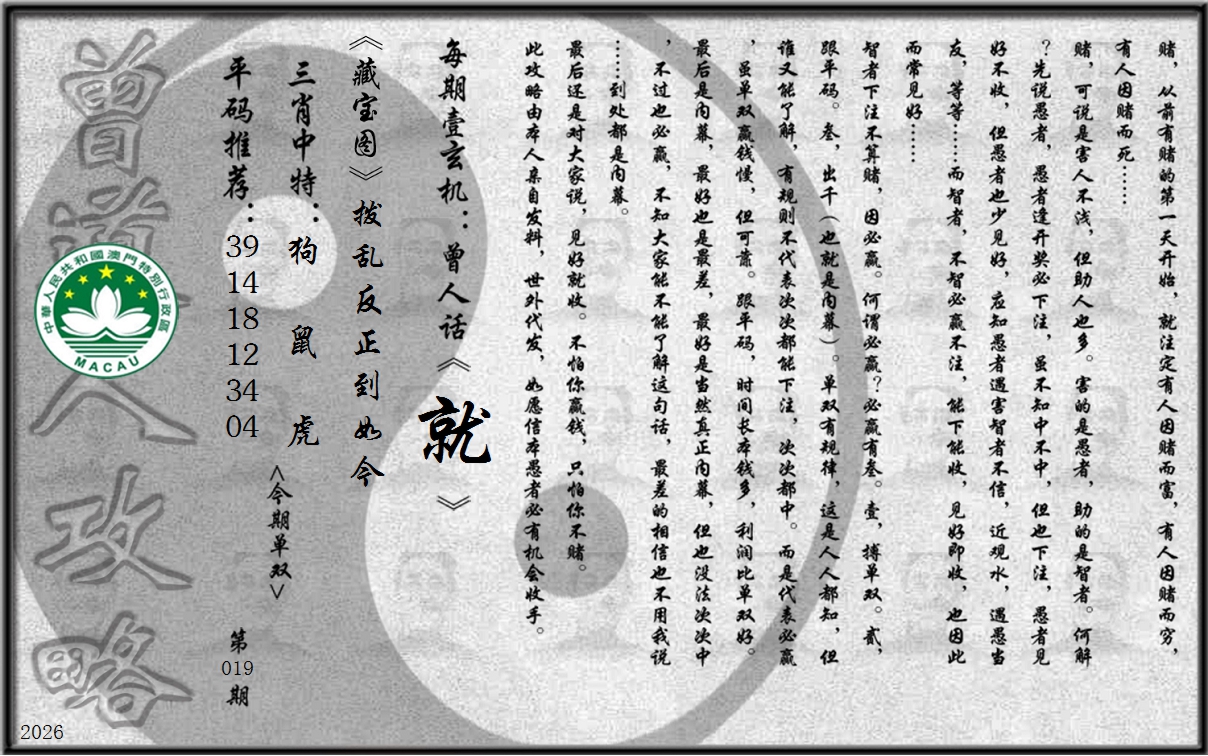 赌，从前有赌的第一天开始，就注定有人因赌而富，有人因赌而穷，
有人因赌而死……
赌，可说是害人不浅，但助人也多。害的是愚者，助的是智者。何解
？先说愚者，愚者逢开奖必下注，虽不知中不中，但也下注，愚者见
好不收，但愚者也少见好，应知愚者遇害智者不信，近观水，遇愚当
友，等等……而智者，不智必赢不注，能下能收，见好即收，也因此
而常见好……
智者下注不算赌，因必赢。何谓必赢？必赢有叁。壹，搏单双。贰，
跟平码。叁，出千（也就是内幕）。单双有规律，这是人人都知，但
谁又能了解，有规则不代表次次都能下注，次次都中。而是代表必赢
，虽单双赢钱慢，但可靠。跟平码，时间长本钱多，利润比单双好。
最后是内幕，最好也是最差，最好是当然真正内幕，但也没法次次中
，不过也必赢，不知大家能不能了解这句话，最差的相信也不用我说
……到处都是内幕。
最后还是对大家说，见好就收。不怕你赢钱，只怕你不赌。
此攻略由本人亲自发料，世外代发，如愿信本愚者必有机会收手。
每期壹玄机：曾人话《就》
《藏宝图》拨乱反正到如今
三肖中特：狗 鼠 虎
<今期单双>
平码推荐：39 14 18 12 34 04
第019期
曾道人攻略
中華人民共和國澳門特別行政區
MACAU
2026